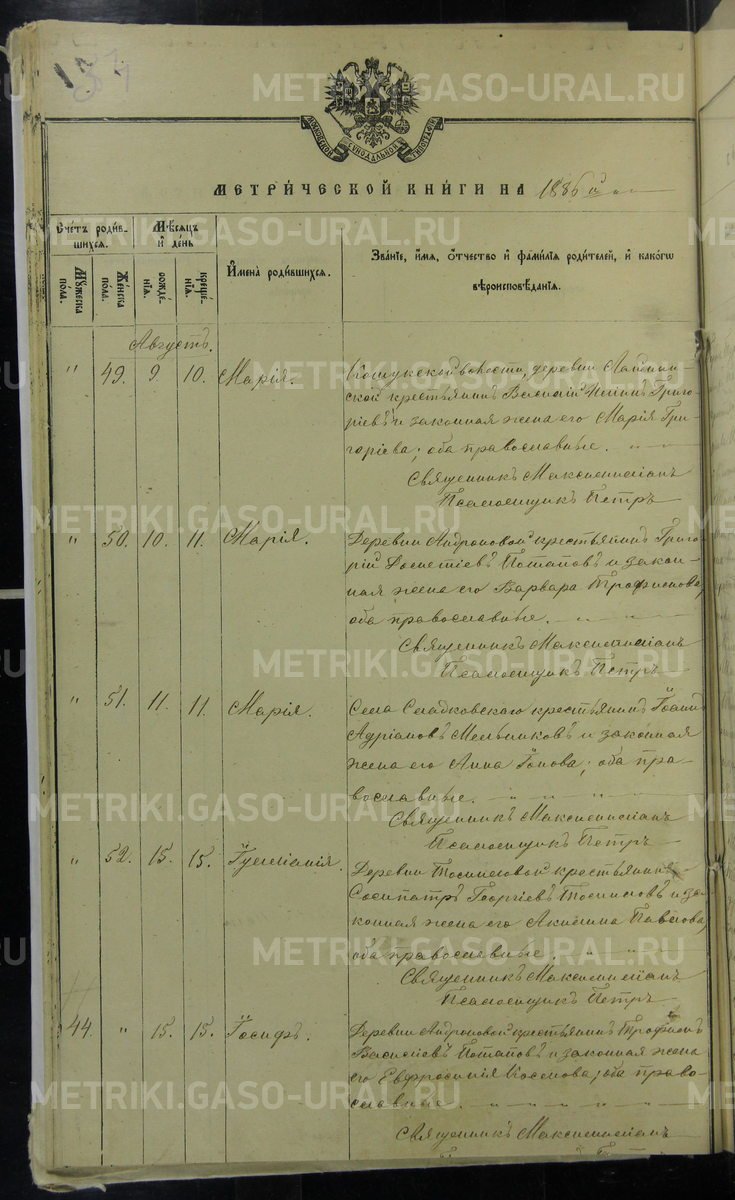 МЕТРИ́ЧЕСКОЙ КНИ́ГИ НА 1886й
МОСКОВСКОЙ СѴНОДАЛЬНОЙ ТИПОГРАФІИ
Сче́тъ роди́в-
шихся.
Му́жеска
пола.
Же́нска
пола.
Мѣсяцъ
и҆ де́нь
рожде́-
нїѧ.
креще́-
нїѧ.
И҆мена̀ роди́вшихся.
Зва́нїе, и҆́мѧ, ѻ҆́тчество и҆ фами́лїѧ роди́телей, и҆ како́гѡ
вѣроисповѣ́данїѧ.
Августъ.
" 49. 9. 10. Марія.
Кошукской волости, деревни
ской крестьянинъ Василій Григо-
ріевъ и законная жена его Марія Гри-
горіева; оба православные.
Священникъ Максимиліанъ
Псаломщикъ Петръ
" 50. 10. 11. Марія.
Деревни Андроновой крестьянинъ Григо-
рій Потаповъ и закон-
ная жена его Варвара Трофимова,
оба православные.
Священникъ Максимиліанъ
Псаломщикъ Петръ
" 51. 11. 11. Марія.
Села Сладковскаго крестьянинъ Іоаннъ
Адріановъ Мельниковъ и законная
жена его Анна Іонова; оба пра-
вославные. " " "
Священникъ Максимиліанъ
Псаломщикъ Петръ
" 52. 15. 15. Іуліанія.
Деревни Томиловой крестьянинъ
Сосипатръ Георгіевъ Томиловъ и за-
конная жена его Акилина Павлова,
оба православные. " "
Священникъ Максимиліанъ
Псаломщикъ Петръ
44. " 15. 15. Іосифъ.
Деревни Андроновой крестьянинъ Трофимъ
Василіевъ Потаповъ и законная жена
его Евфросинія Космова; оба право-
славные. " " " "
Священникъ Максимиліанъ
METRIKI.GASO-URAL.RU